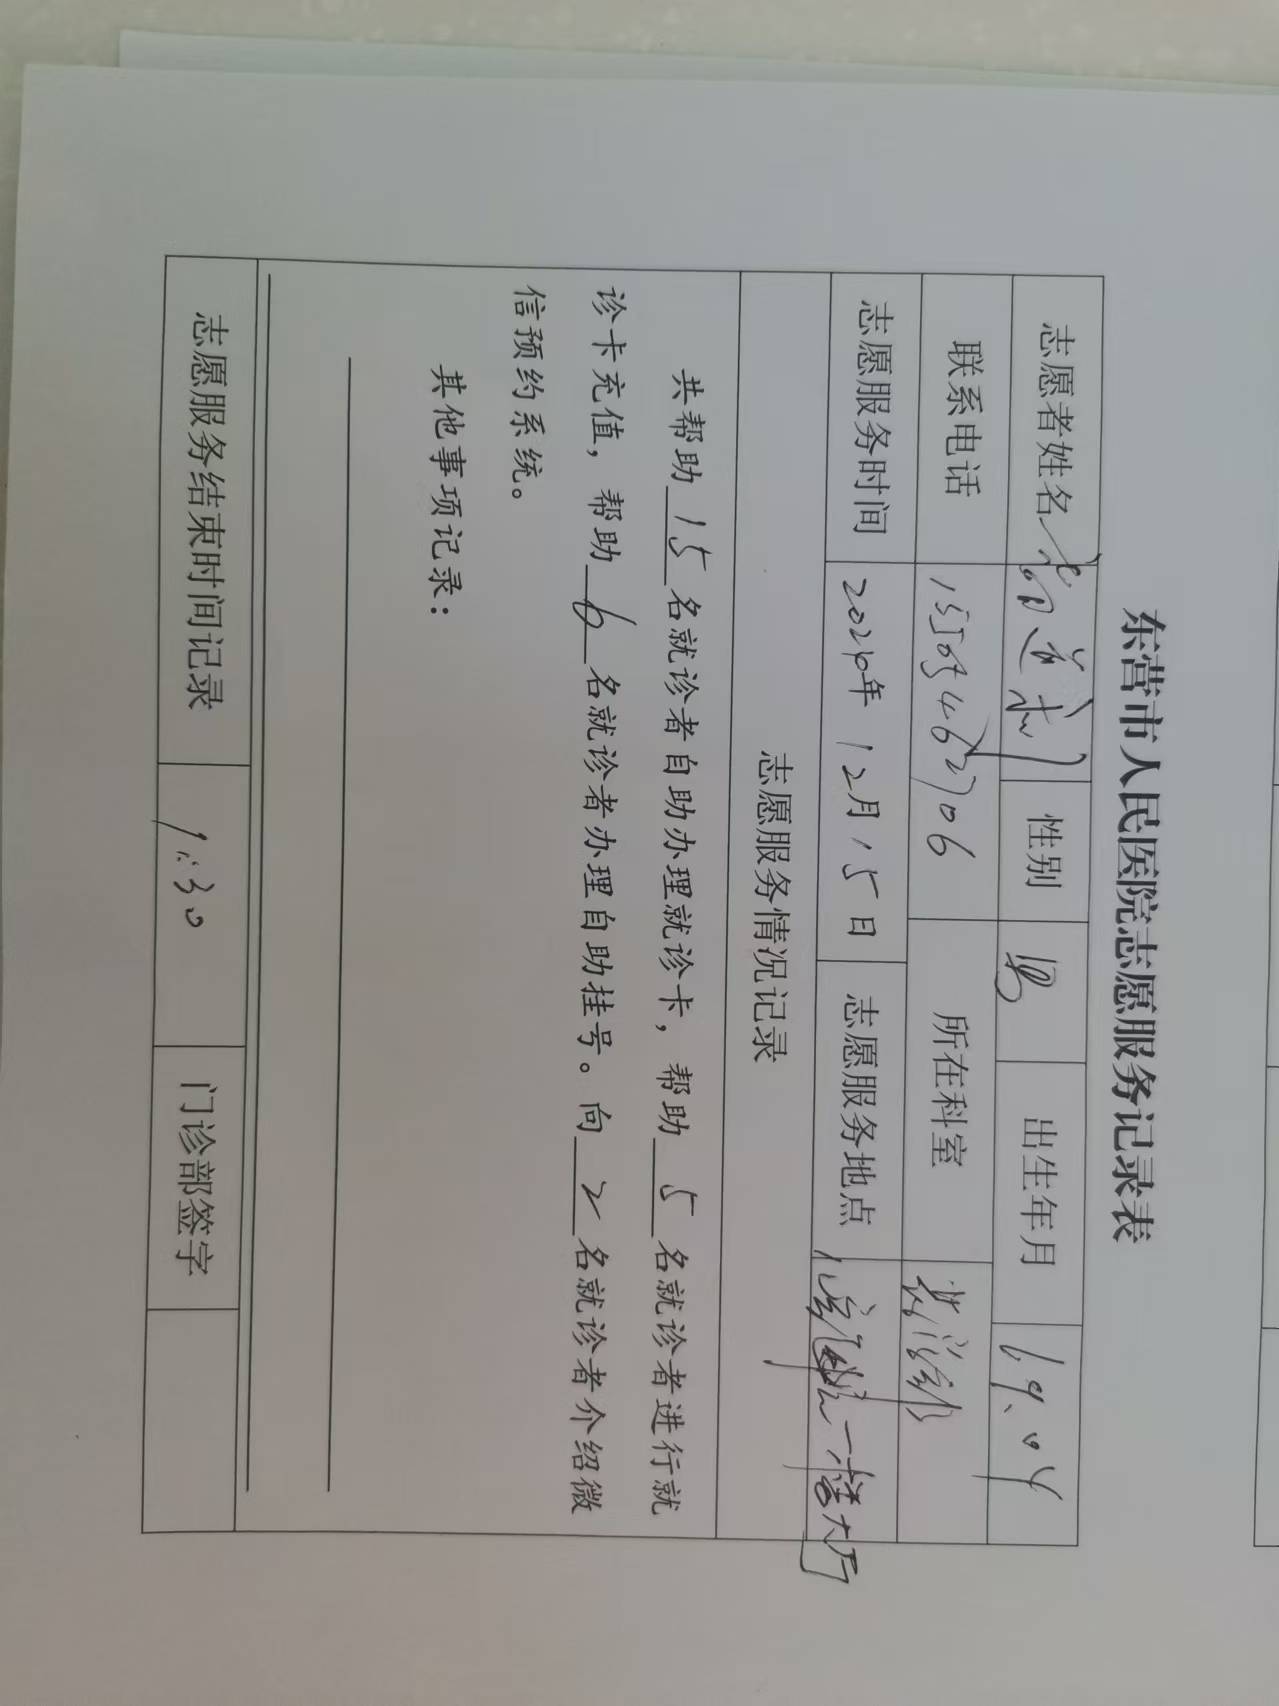 东营市人民医院志愿服务记录表
志愿者姓名 性别 男 出生年月 69.04
联系电话 所在科室
志愿服务时间 2024年 12月15日 志愿服务地点 一楼大厅
志愿服务情况记录
共帮助 15 名就诊者自助办理就诊卡，帮助 5 名就诊者进行就
诊卡充值，帮助 6 名就诊者办理自助挂号。向 2 名就诊者介绍微
信预约系统。
其他事项记录：
志愿服务结束时间记录 11:30 门诊部签字